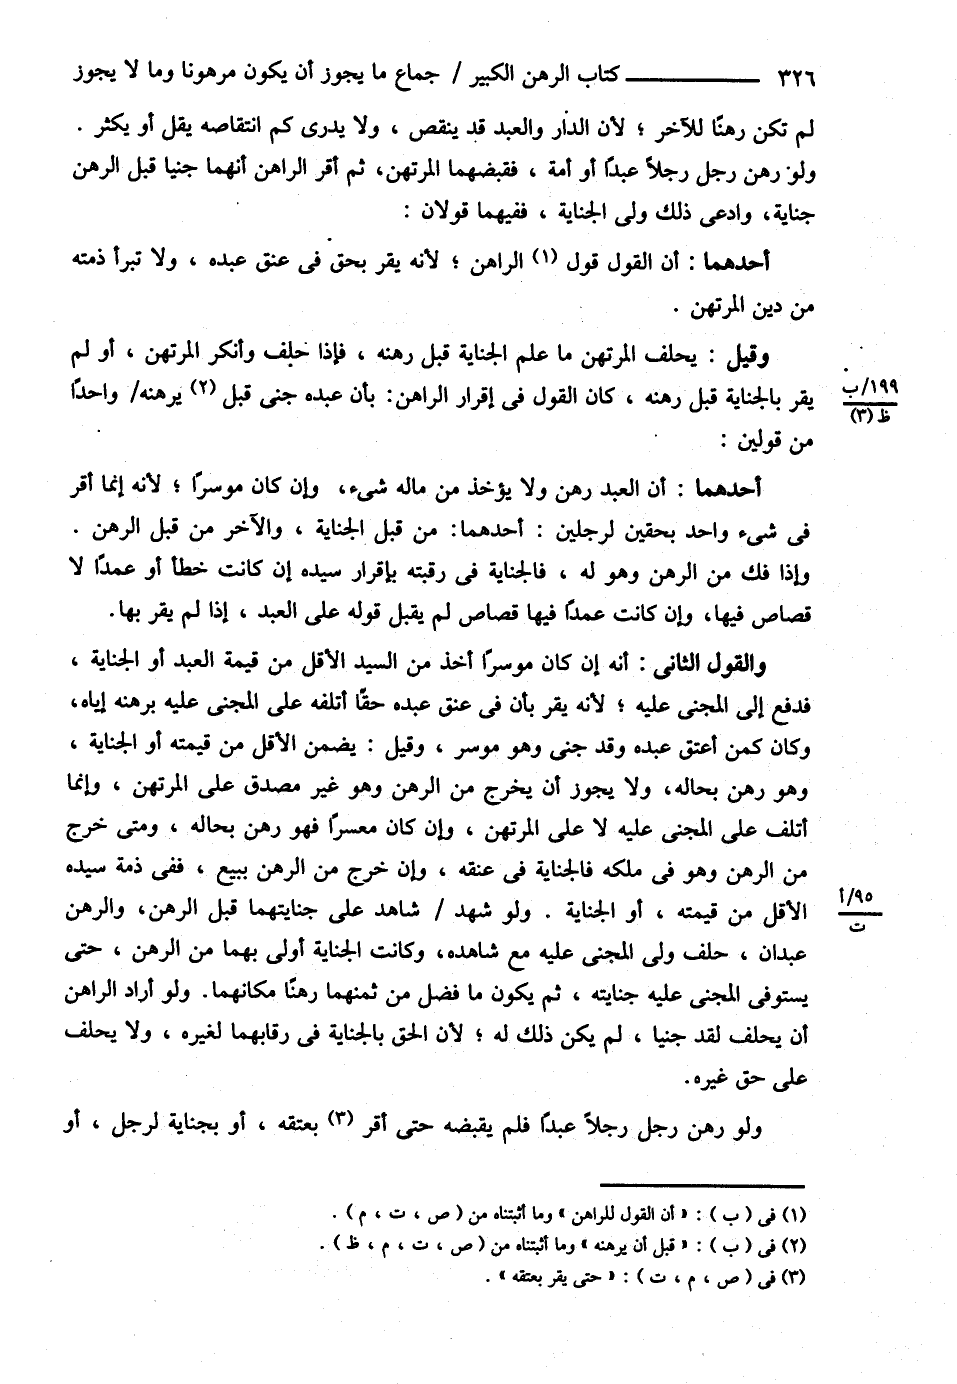 ٣٢٦ ــــــــــــ كتاب الرهن الكبير / جماع ما يجوز أن يكون مرهونا وما لا يجوز
لم تكن رهنًا للآخر ؛ لأن الدار والعبد قد ينقص ، ولا يدرى كم انتقاصه يقل أو يكثر .
ولو رهن رجل رجلاً عبدًا أو أمة ، فقبضهما المرتهن، ثم أقر الراهن أنهما جنيا قبل الرهن
جناية، وادعى ذلك ولى الجناية ، ففيهما قولان :
أحدهما : أن القول قول (١) الراهن ؛ لأنه يقر بحق فى عنق عبده ، ولا تبرأ ذمته
من دين المرتهن .
وقيل : يحلف المرتهن ما علم الجناية قبل رهنه ، فإذا حلف وأنكر المرتهن ، أو لم
يقر بالجناية قبل رهنه ، كان القول فى إقرار الراهن: بأن عبده جنى قبل (٢) يرهنه/ واحدًا
١٩٩/ب
ظ (٣)
من قولين :
أحدهما : أن العبد رهن ولا يؤخذ من ماله شىء، وإن كان موسرًا ؛ لأنه إنما أقر
فى شىء واحد بحقين لرجلين : أحدهما: من قبل الجناية ، والآخر من قبل الرهن .
وإذا فك من الرهن وهو له ، فالجناية فى رقبته بإقرار سيده إن كانت خطأ أو عمدًا لا
قصاص فيها، وإن كانت عمدًا فيها قصاص لم يقبل قوله على العبد ، إذا لم يقر بها.
والقول الثانى : أنه إن كان موسرًا أخذ من السيد الأقل من قيمة العبد أو الجناية ،
فدفع إلى المجنى عليه ؛ لأنه يقر بأن فى عنق عبده حقًا أتلفه على المجنى عليه برهنه إياه،
وكان كمن أعتق عبده وقد جنى وهو موسر ، وقيل : يضمن الأقل من قيمته أو الجناية ،
وهو رهن بحاله، ولا يجوز أن يخرج من الرهن وهو غير مصدق على المرتهن ، وإنما
أتلف على المجنى عليه لا على المرتهن ، وإن كان معسرًا فهو رهن بحاله ، ومتى خرج
من الرهن وهو فى ملكه فالجناية فى عنقه ، وإن خرج من الرهن ببيع ، ففى ذمة سيده
الأقل من قيمته ، أو الجناية . ولو شهد / شاهد على جنايتهما قبل الرهن، والرهن
٩٥/أ
ت
عبدان ، حلف ولى المجنى عليه مع شاهده، وكانت الجناية أولى بهما من الرهن ، حتى
يستوفى المجنى عليه جنايته ، ثم يكون ما فضل من ثمنهما رهنًا مكانهما. ولو أراد الراهن
أن يحلف لقد جنيا ، لم يكن ذلك له ؛ لأن الحق بالجناية فى رقابهما لغيره ، ولا يحلف
على حق غيره.
ولو رهن رجل رجلاً عبدًا فلم يقبضه حتى أقر (٣) بعتقه ، أو بجناية لرجل ، أو
(١) فى ( ب ) : « أن القول للراهن » وما أثبتناه من ( ص ، ت ، م ) .
(٢) فى ( ب ) : « قبل أن يرهنه » وما أثبتناه من ( ص ، ت ، م ، ظ ) .
(٣) فى ( ص ، م ، ت ) : « حتى يقر بعتقه » .